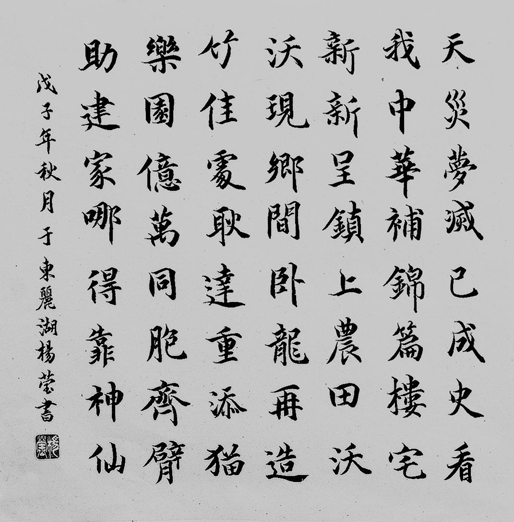 天災夢滅已成史看
我中華補錦篇樓宅
新新呈鎮上農田沃
沃現鄉間卧龍再造
竹佳處耿達重添猫
樂園億萬同胞齊臂
助建家哪得靠神仙
戊子年秋月于東麗湖楊瑩書